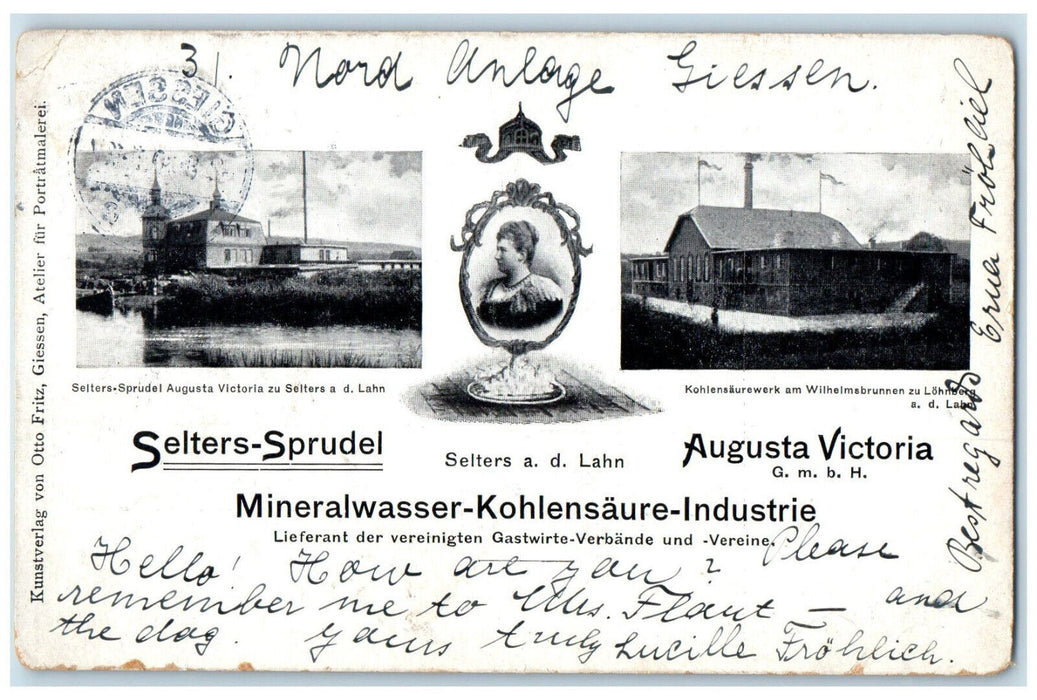 31. Nord Anlage Giessen.
GIESSEN
Kunstverlag von Otto Fritz, Giessen, Atelier für Porträtmalerei.
Selters-Sprudel Augusta Victoria zu Selters a d. Lahn
Kohlensäurewerk am Wilhelmsbrunnen zu Löhnberg
a. d. Lahn
Selters-Sprudel
Selters a. d. Lahn
Augusta Victoria
G. m. b. H.
Mineralwasser-Kohlensäure-Industrie
Lieferant der vereinigten Gastwirte-Verbände und -Vereine.
Hello! How are you? Please
remember me to Mrs. Flaut — and
the dog. Yours truly Lucille Fröhlich.
Best regards Erna Fröhlich